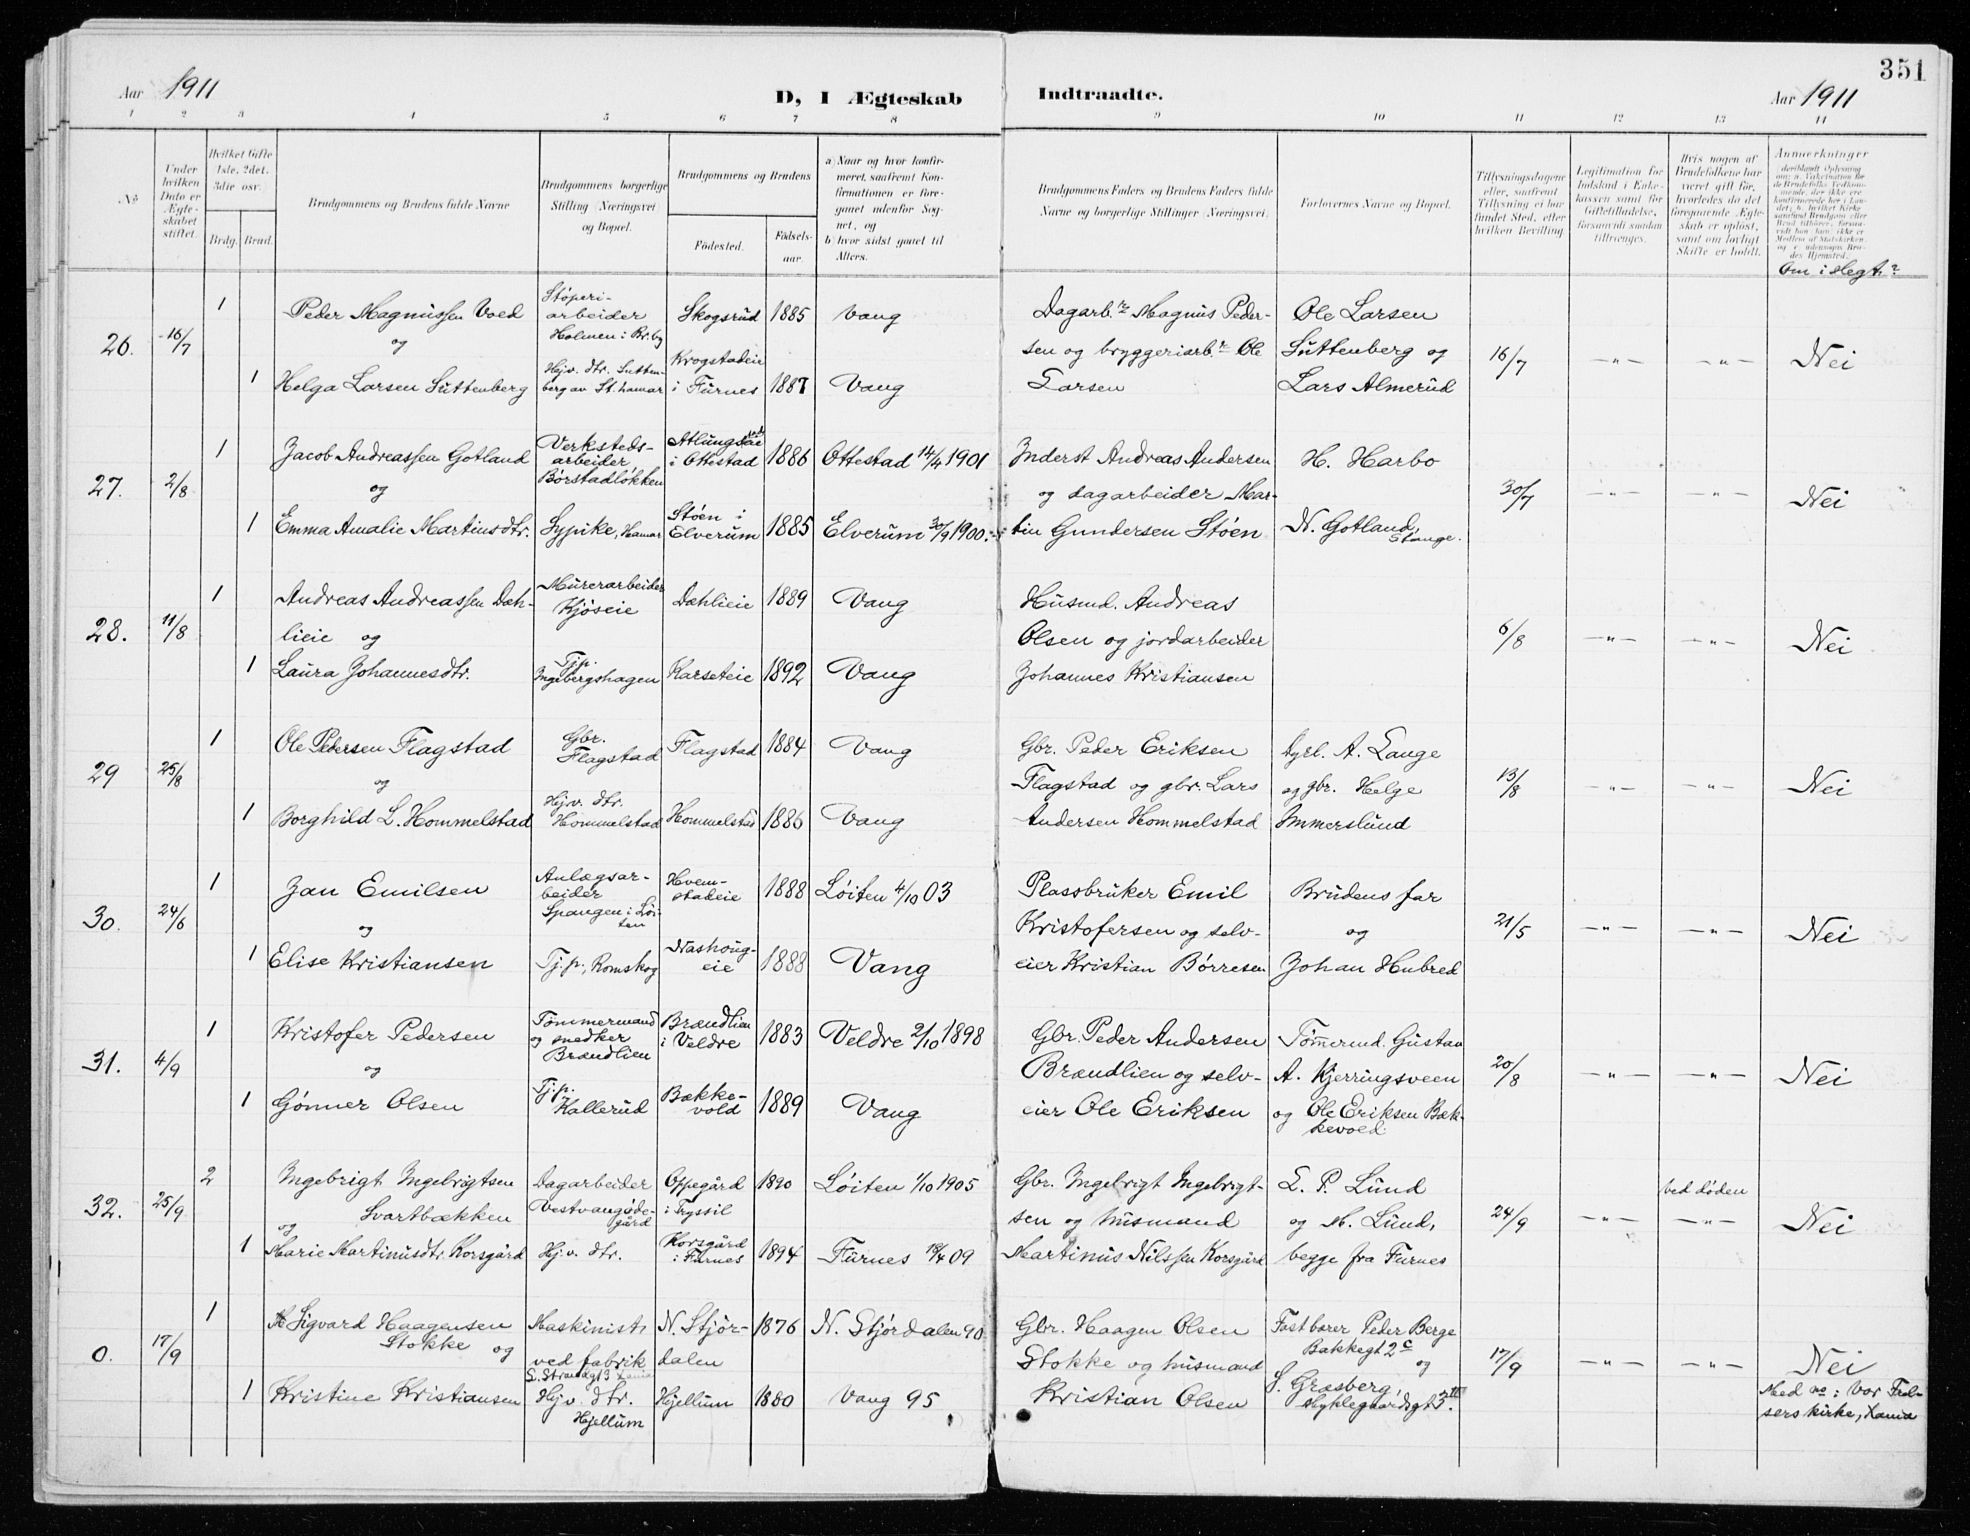 351
Aar 1911
D, I Ægteskab Indtraadte.
Aar 1911
1 2 3 4 5 6 7 8 9 10 11 12 13 14
No
Under hvilken Dato er Ægteskabet stiftet.
Hvilket Gifte 1ste, 2det, 3die osv.
Brdg. Brud.
Brudgommens og Brudens fulde Navne
Brudgommens borgerlige Stilling (Næringsvei) og Bopæl.
Brudgommens og Brudens
Fødested.
Fødselsaar.
a) Naar og hvor konfirmeret, saafremt Konfirmationen er foregaaet udenfor Sognet, og
b) hvor sidst gaaet til Alters.
Brudgommens Faders og Brudens Faders fulde Navne og borgerlige Stilling (Næringsvei).
Forlovernes Navne og Bopæl.
Tillysningsdagene eller, saafremt Tillysning ei har fundet Sted, efter hvilken Bevilling.
Legitimation for Indskud i Enkekassen samt for Giftetilladelse, forsaavidt saadan tiltrænges.
Hvis nogen af Brudefolkene har været gift før, hvorledes da det foregaaende Ægteskab er opløst, samt om lovligt Skifte er holdt.
Anmærkninger
Om i slegt?
26. 16/7
1 Peder Magnussen Voed
Støperiarbeider Holmen i Br.by
Skogsrud 1885 Vang
og
1 Helga Larsen Suttenberg
Hjv. dtr. Suttenberg av St.hamar
Krogstadeie i Furnes 1887 Vang
Dagarb.r Magnus Pedersen og bryggeriarb.r Ole Larsen
Ole Larsen Suttenberg og Lars Almerud
16/7 -"- -"- Nei
27. 2/8
1 Jacob Andreassen Gotland
Verkstedsarbeider Børstadløkken
i Ottestad 1886 Ottestad 14/4 1901
og
1 Emma Amalie Martinsdtr.
Sypike, Hamar
Støen i Elverum 1885 Elverum 30/9 1900.
Inderst Andreas Andersen og dagarbeider Martin Gundersen Støen
H. Harbo
N. Gotland, Stange.
30/7 -"- -"- Nei
28. 11/8
1 Andreas Andreassen Dæhlieie og
Murerarbeider Kjøseie
Dæhlieie 1889 Vang
1 Laura Johannesdtr.
Tj.p. Ingebergshagen
Karseteie 1892 Vang
Husmd. Andreas Olsen og jordarbeider Johannes Kristiansen
6/8 -"- -"- Nei
29 25/8
1 Ole Pedersen Flagstad
Gbr. Flagstad
Flagstad 1884 Vang
og
1 Borghild L. Hommelstad
Hjv. dtr. Hommelstad
Hommelstad 1886 Vang
Gbr. Peder Eriksen Flagstad og gbr. Lars Andersen Hommelstad
Dyrl. A. Lange og gbr. Helge Immerslund
13/8 -"- -"- Nei
30. 24/6
1 Jan Emilsen
Anlægsarbeider Spangen i Løiten
Hvemstadeie 1888 Løiten 4/10 03
og
1 Elise Kristiansen
Tj.p., Romskog
Nashougeie 1888 Vang
Plassbruker Emil Kristofersen og selveier Kristian Børresen
Brudens far og Johan Hubred
21/5 -"- -"- Nei
31. 4/9
1 Kristofer Pedersen
Tømmermand og snedker Brændlien
Brændlien i Veldre 1883 Veldre 2/10 1898
og
1 Gønner Olsen
Tj.p. Kallerud
Bækkevold 1889 Vang
Gbr. Peder Andersen Brændlien og selveier Ole Eriksen
Tømermd. Gustav A. Kjerringsveen og Ole Eriksen Bækkevold
20/8 -"- -"- Nei
32. 25/9
2 Ingebrigt Ingebrigtsen Svartbækken
Dagarbeider Vestvangødegård
Oppegård i Trysil 1890 Løiten 1/10 1905
og
1 Marie Martinusdtr. Korsgård
Hj.v. dtr.
Korsgård i Furnes 1894 Furnes 18/4 09
Gbr. Ingebrigt Ingebrigtsen og husmand Martinus Nilssen Korsgård
L. P. Lund og M. Lund, begge fra Furnes
24/9 -"- ved døden -"- Nei
0. 17/9
1 Sigvard Haagensen Stokke og
Maskinist ved fabrik
N. Stjørdalen 1876 N. Stjørdalen 90
1 Kristine Kristiansen
Hjv. dtr. Hjellum
Hjellum 1880 Vang 95
Gbr. Haagen Olsen Stokke og husmand Kristian Olsen
Peder Berge Bakkegt 2c og
S. Græsberg,
17/9 -"- -"- Nei
Med no i Vor Frelsers kirke, Xania